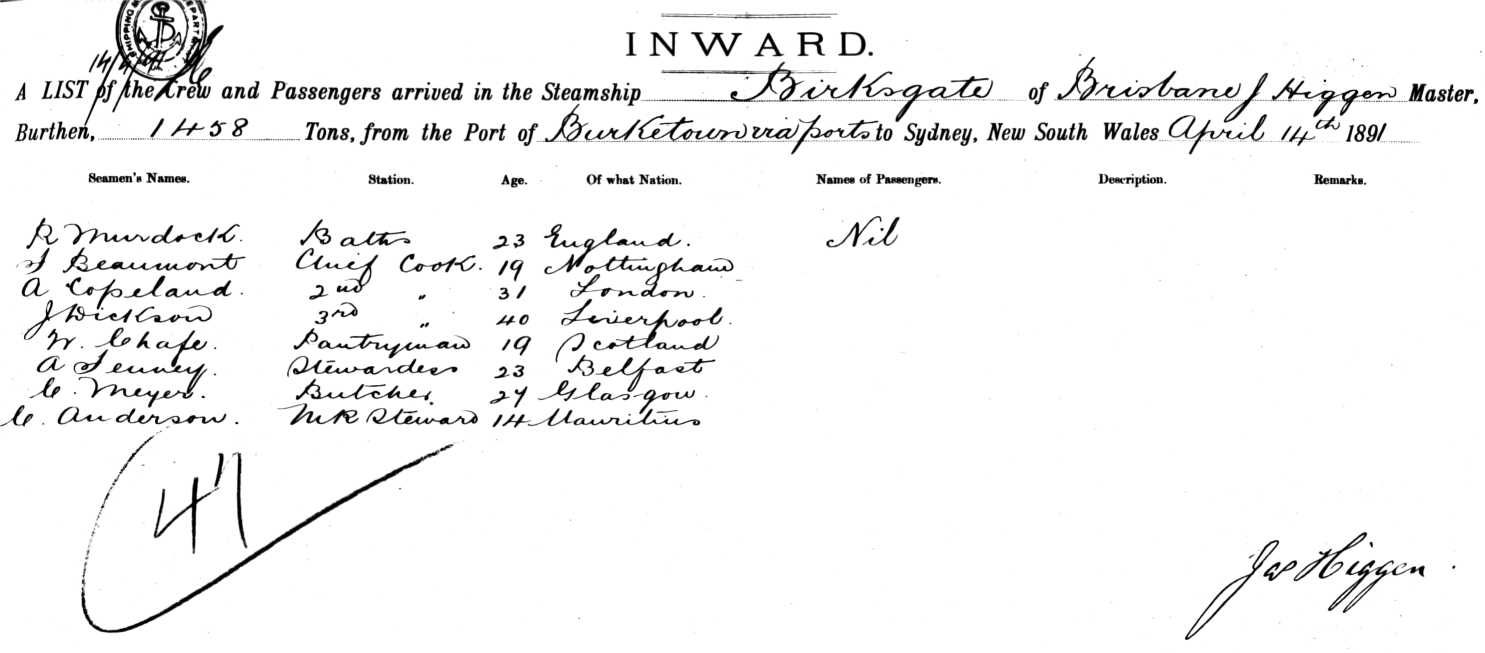 SHIPPING M DEPART
14/4/91
INWARD.
A LIST of the Crew and Passengers arrived in the Steamship Birksgate of Brisbane J Higgen Master,
Burthen, 1458 Tons, from the Port of Burketown via ports to Sydney, New South Wales April 14th 1891
Seamen's Names. Station. Age. Of what Nation. Names of Passengers. Description. Remarks.
R Murdock. Baths 23 England. Nil
Beaumont Chief Cook. 19 Nottingham
A Copeland. 2nd " 31 London.
J Dickson 3rd " 40 Liverpool.
W. Chafe. Pantryman 19 Scotland
A Fenney. Stewardess 23 Belfast
C. Meyer. Butcher 27 Glasgow.
C. Anderson. MR Steward 14 Mauritius
47
Jas Higgen